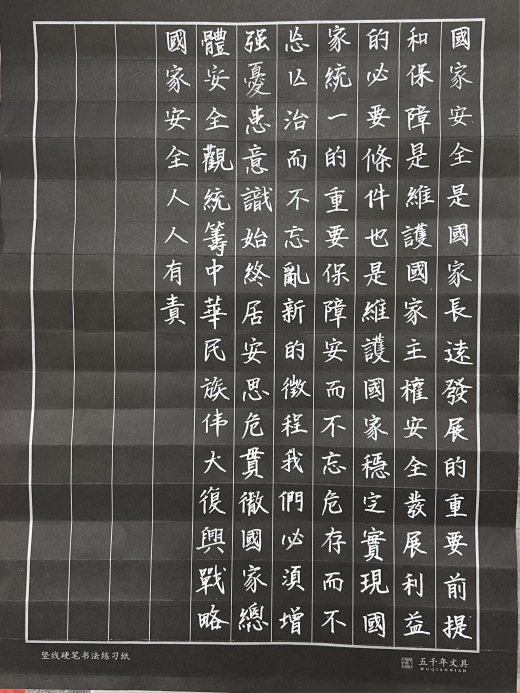 國家安全是國家長遠發展的重要前提
和保障是維護國家主權安全發展利益
的必要條件也是維護國家穩定實現國
家統一的重要保障安而不忘危存而不
忘亡治而不忘亂新的徵程我們必須增
强憂患意識始終居安思危貫徹國家總
體安全觀統籌中華民族伟大復興戰略
國家安全人人有責
竖线硬笔书法练习纸
五千年文具
WUQIANNIAN